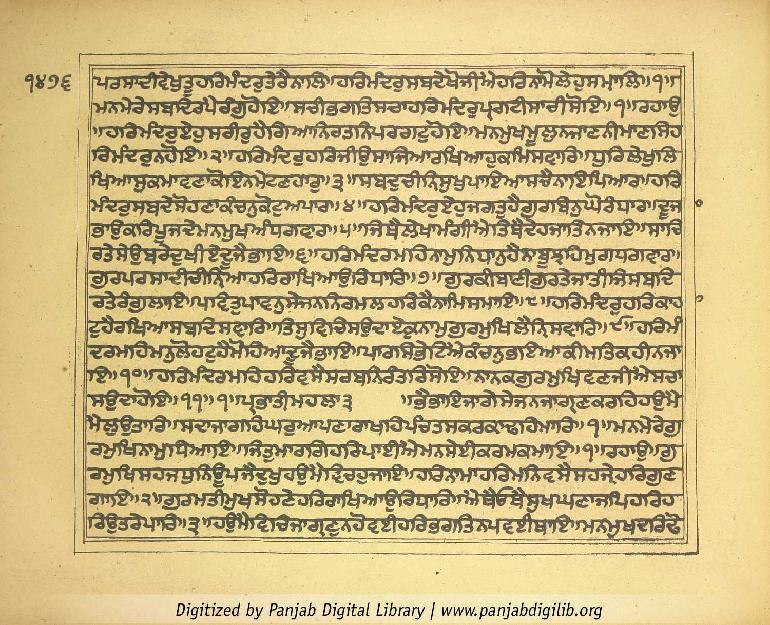 ੧੪੭੬
ਪਰਸਾਦੀਵੇਖੁਤੂਹਰਿਮੰਦਰੁਤੇਰੈਨਾਲਿ॥ਹਰਿਮੰਦਰੁਸਬਦੇਖੋਜੀਐਹਰਿਨਾਮੋਲੇਹੁਸਮਾਲਿ॥੧॥
ਮਨਮੇਰੇਸਬਦਿਰਪੈਰੰਗੁਹੋਇ॥ਸਚੀਭਗਤਿਸਚਾਹਰਿਮੰਦਿਰੁਪ੍ਰਗਟੀਸਾਚੀਸੋਇ॥੧॥ਰਹਾਉ
॥ਹਰਿਮੰਦਿਰੁਏਹੁਸਰੀਰੁਹੈਗਿਆਨਿਰਤਨਿਪਰਗਟੁਹੋਇ॥ਮਨਮੁਖਮੂਲੁਨਜਾਣਨੀਮਾਣਸਿਹ
ਰਿਮੰਦਰੁਨਹੋਇ॥੨॥ਹਰਿਮੰਦਿਰੁਹਰਿਜੀਉਸਾਜਿਆਰਖਿਆਹੁਕਮਿਸਵਾਰਿ॥ਧੁਰਿਲੇਖੁਲਿ
ਖਿਆਸੁਕਮਾਵਣਾਕੋਇਨਮੇਟਣਹਾਰੁ॥੩॥ਸਬਦੁਚੀਨਿਸੁਖੁਪਾਇਆਸਚੈਨਾਇਪਿਆਰ॥ਹਰਿ
ਮੰਦਰੁਸਬਦੇਸੋਹਣਾਕੰਚਨੁਕੋਟੁਅਪਾਰ॥੪॥ਹਰਿਮੰਦਿਰੁਏਹੁਜਗਤੁਹੈਗੁਰਬਿਨੁਘੋਰੰਧਾਰ॥ਦੂਜਾ
ਭਾਉਕਰਿਪੂਜਦੇਮਨਮੁਖਅੰਧਗਵਾਰ॥੫॥ਜਿਥੈਲੇਖਾਮੰਗੀਐਤਿਥੈਦੇਹਜਾਤਿਨਜਾਇ॥ਸਾਚਿ
ਰਤੇਸੇਉਬਰੇਦੁਖੀਏਦੂਜੈਭਾਇ॥੬॥ਹਰਿਮੰਦਿਰਮਹਿਨਾਮੁਨਿਧਾਨੁਹੈਨਾਬੂਝਹਿਮੁਗਧਗਵਾਰ॥
ਗੁਰਪਰਸਾਦੀਚੀਨਿਆਹਰਿਰਾਖਿਆਉਰਿਧਾਰਿ॥੭॥ਗੁਰਕੀਬਾਣੀਗੁਰਤੇਜਾਤੀਜਿਸਬਦਿ
ਰਤੇਰੰਗੁਲਾਇ॥ਪਵਿਤੁਪਾਵਨੁਸੇਜਨਨਿਰਮਲਹਰਿਕੈਨਾਮਿਸਮਾਇ॥੮॥ਹਰਿਮੰਦਿਰੁਹਰਿਕਾਹ
ਟੁਹੈਰਖਿਆਸਬਦਿਸਵਾਰਿ॥ਤਿਸੁਵਿਚਿਸਉਦਾਏਕੁਨਾਮੁਗੁਰਮੁਖਿਲੈਨਿਸਵਾਰਿ॥੯॥ਹਰਿਮੰ
ਦਰਮਹਿਮਨੁਲੋਹਟੁਹੈਮੋਹਿਆਦੂਜੈਭਾਇ॥ਪਾਰਸਿਭੇਟਿਐਕੰਚਨੁਭਾਇਆਕੀਮਤਿਕਹੀਨਜਾ
ਇ॥੧੦॥ਹਰਿਮੰਦਿਰਮਹਿਹਰਿਵਸੈਸਰਬਨਿਰੰਤਰਿਸੋਇ॥ਨਾਨਕਗੁਰਮੁਖਿਵਣਜੀਐਸਚਾ
ਸਉਦਾਹੋਇ॥੧੧॥੧॥ਪ੍ਰਭਾਤੀਮਹਲਾ੩ ॥ਭੈਭਾਇਜਾਗੇਸੇਜਨਜਾਗ੍ਰਣਕਰਹਿਹਉਮੈ
ਮੈਲੁਉਤਾਰਿ॥ਸਦਾਜਾਗਹਿਘਰੁਅਪਣਾਰਾਖਹਿਪੰਚਤਸਕਰਕਾਢਹਿਮਾਰਿ॥੧॥ਮਨਮੇਰੇਗੁ
ਰਮੁਖਿਨਾਮੁਧਿਆਇ॥ਜਿਤੁਮਾਰਗਿਹਰਿਪਾਈਐਮਨਸੇਈਕਰਮਕਮਾਇ॥੧॥ਰਹਾਉ॥ਗੁ
ਰਮੁਖਿਸਹਜਧੁਨਿਊਪਜੈਦੁਖੁਹਉਮੈਵਿਚਹੁਜਾਇ॥ਹਰਿਨਾਮਾਹਰਿਮਨਿਵਸੈਸਹਜੇਹਰਿਗੁਣ
ਗਾਇ॥੨॥ਗੁਰਮਤੀਮੁਖਸੋਹਣੇਹਰਿਰਾਖਿਆਉਰਿਧਾਰਿ॥ਐਥੈਓਥੈਸੁਖੁਘਣਾਜਪਿਹਰਿਹ
ਰਿਉਤਰੇਪਾਰਿ॥੩॥ਹਉਮੈਵਿਚਿਜਾਗ੍ਰਣੁਨਹੋਵਈਹਰਿਭਗਤਿਨਪਵਈਥਾਇ॥ਮਨਮੁਖਦਰਿਢੋ
Digitized by Panjab Digital Library | www.panjabdigilib.org